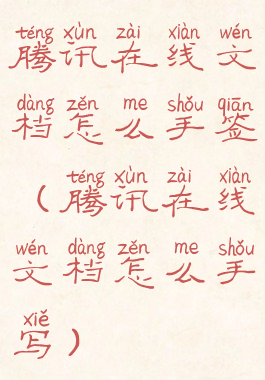 téng xùn zài xiàn wén
腾讯在线文
dàng zěn me shǒu qiān
档怎么手签
téng xùn zài xiàn
（腾讯在线
wén dàng zěn me shǒu
文档怎么手
xiě
写）